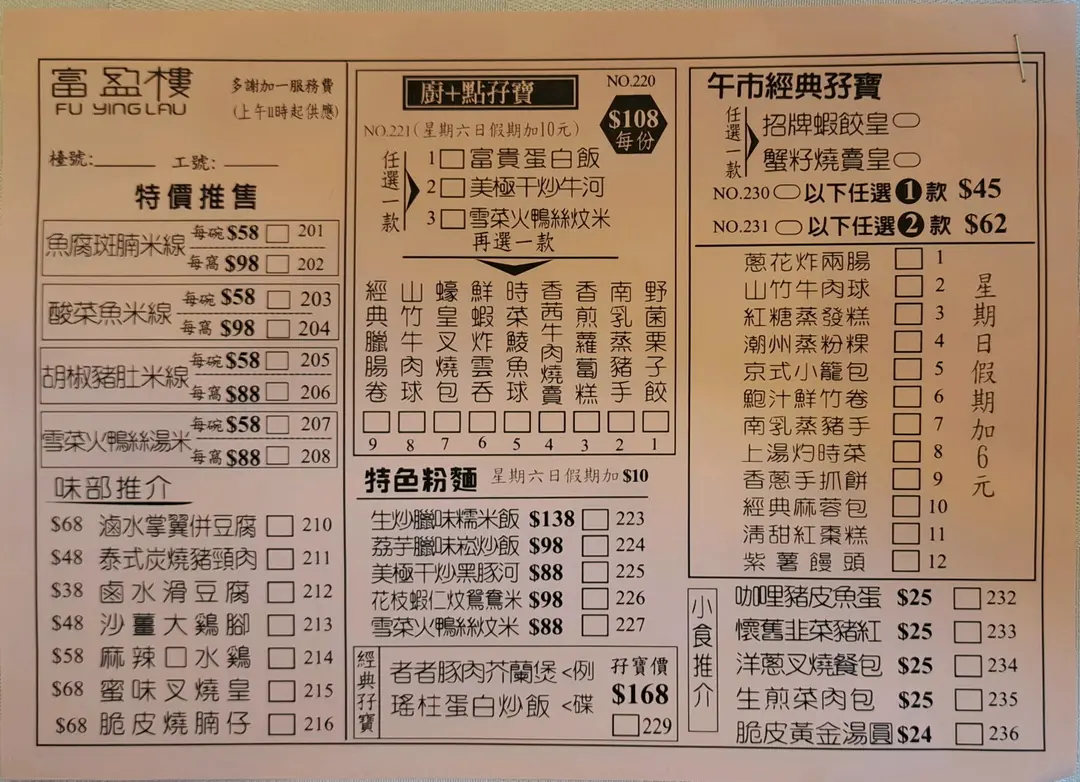 富盈樓
FU YING LAU
多謝加一服務費
(上午11時起供應)
檯號:
工號:
特價推售
魚腐斑腩米線
每碗 $58 201
每窩 $98 202
酸菜魚米線
每碗 $58 203
每窩 $98 204
胡椒豬肚米線
每碗 $58 205
每窩 $88 206
雪菜火鴨絲湯米
每碗 $58 207
每窩 $88 208
味部推介
$68 滷水掌翼併豆腐 210
$48 泰式炭燒豬頸肉 211
$38 鹵水滑豆腐 212
$48 沙薑大鷄腳 213
$58 麻辣口水鷄 214
$68 蜜味叉燒皇 215
$68 脆皮燒腩仔 216
廚+點孖寶
NO.220
$108
每份
NO.221(星期六日假期加10元)
任選一款
1 富貴蛋白飯
2 美極干炒牛河
3 雪菜火鴨絲炆米
再選一款
經典臘腸卷 9
山竹牛肉球 8
蠔皇叉燒包 7
鮮蝦炸雲吞 6
時菜鯪魚球 5
香茜牛肉燒賣 4
香煎蘿蔔糕 3
南乳蒸豬手 2
野菌栗子餃 1
特色粉麵
星期六日假期加 $10
生炒臘味糯米飯 $138 223
荔芋臘味崧炒飯 $98 224
美極干炒黑豚河 $88 225
花枝蝦仁炆鴛鴦米 $98 226
雪菜火鴨絲炆米 $88 227
經典孖寶
者者豚肉芥蘭煲 <例
瑤柱蛋白炒飯 <碟
孖寶價
$168
229
午市經典孖寶
任選一款
招牌蝦餃皇
蟹籽燒賣皇
NO.230 以下任選1款 $45
NO.231 以下任選2款 $62
蔥花炸兩腸 1
山竹牛肉球 2
紅糖蒸發糕 3
潮州蒸粉粿 4
京式小籠包 5
鮑汁鮮竹卷 6
南乳蒸豬手 7
上湯灼時菜 8
香蔥手抓餅 9
經典麻蓉包 10
清甜紅棗糕 11
紫薯饅頭 12
星期日假期加6元
小食推介
咖哩豬皮魚蛋 $25 232
懷舊韭菜豬紅 $25 233
洋蔥叉燒餐包 $25 234
生煎菜肉包 $25 235
脆皮黃金湯圓 $24 236